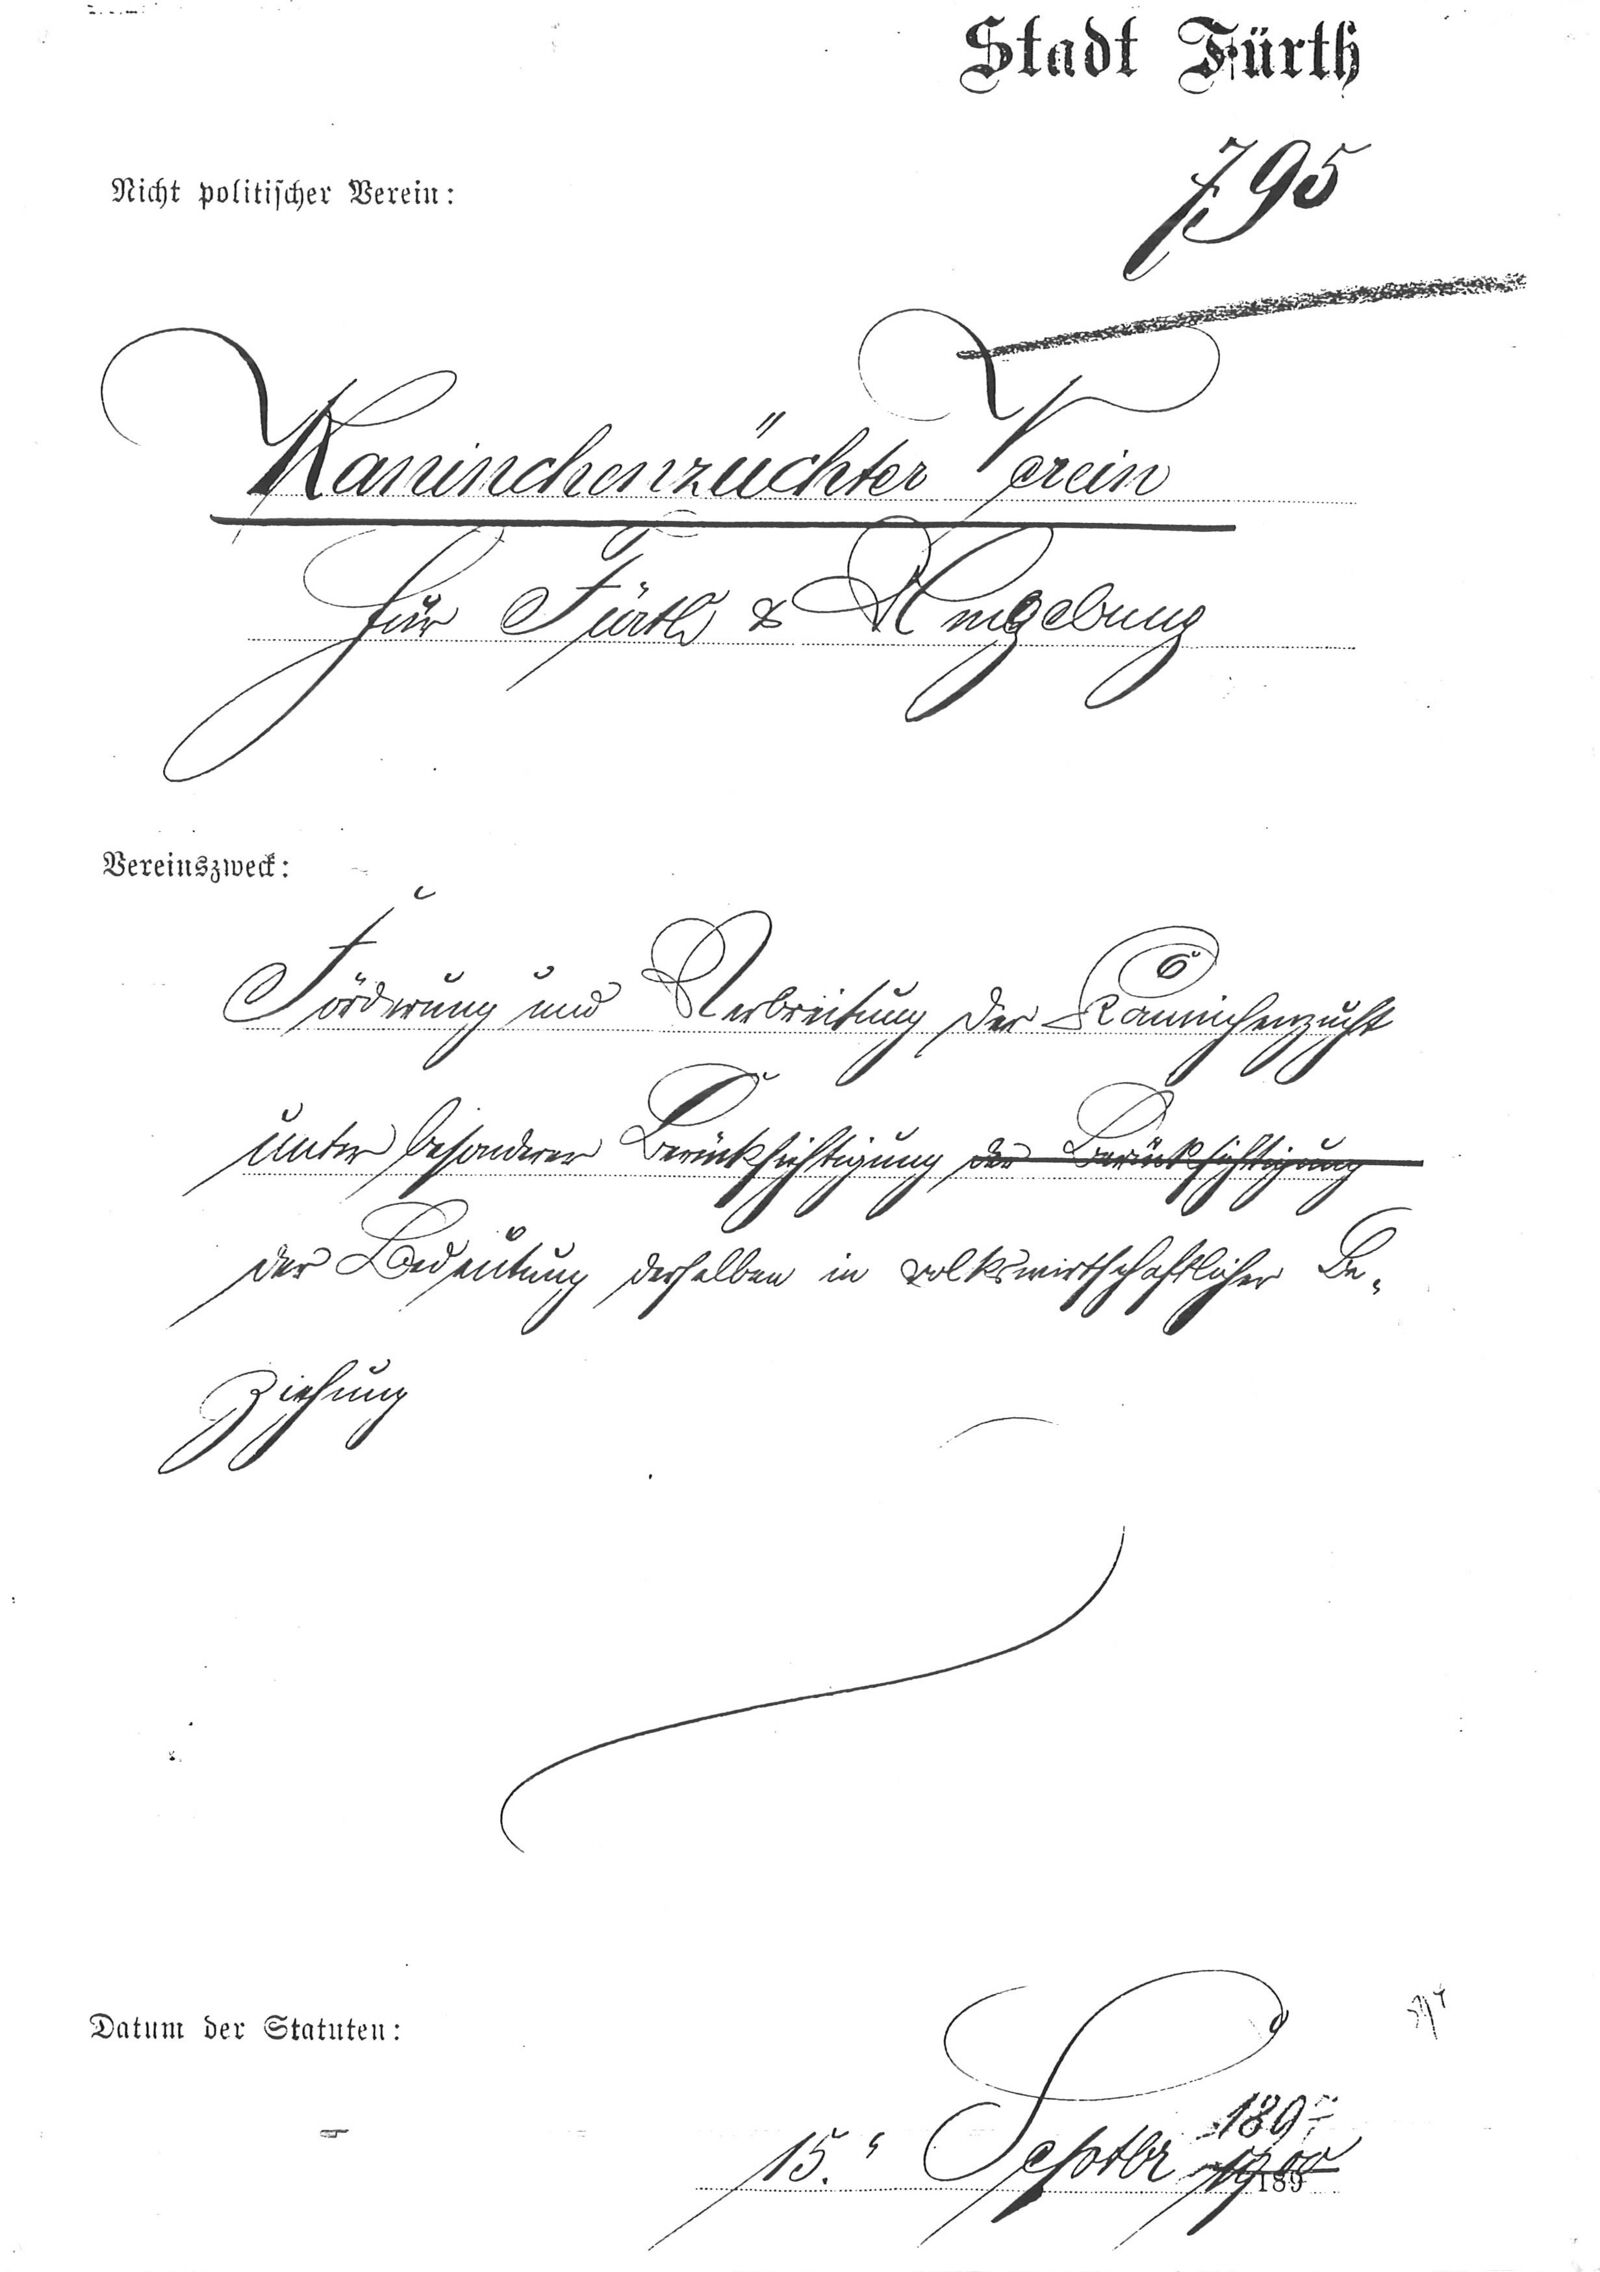 Stadt Fürth
Nicht politischer Verein:
Kaninchenzüchter Verein
für Fürth & Umgebung
Vereinszweck:
Förderung und Verbreitung der Kaninchenzucht
unter besonderer Berücksichtigung der Berücksichtigung
der Bedeutung derselben in volkswirthschaftlicher Be-
ziehung
Datum der Statuten:
15. Septbr 1900
189